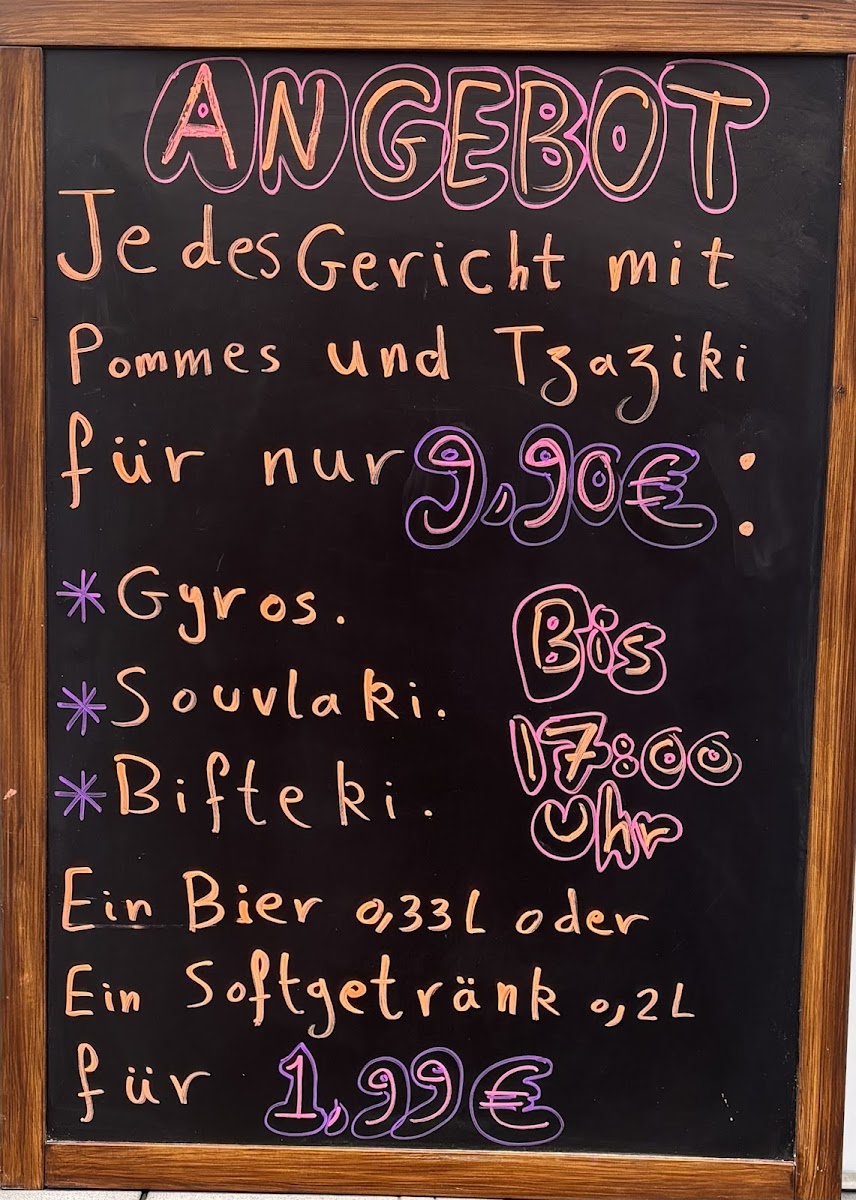 ANGEBOT
Jedes Gericht mit
Pommes und Tzaziki
für nur 9,90€ :
* Gyros.
* Souvlaki.
* Bifteki.
Bis
17:00
Uhr
Ein Bier 0,33L oder
Ein Softgetränk 0,2L
für 1,99€